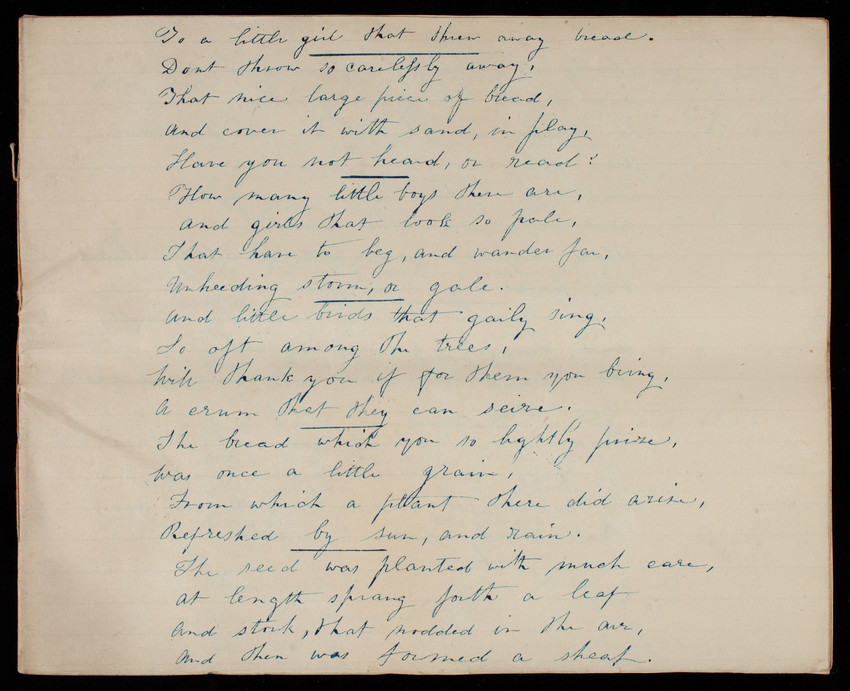 To a little girl that threw away bread.
Dont throw so carelessly away,
That nice large piece of bread,
And cover it with sand, in play,
Have you not heard, or read?
How many little boys there are,
And girls that look so pale,
That have to beg, and wander far,
Unheeding storm, or gale.
And little birds that gaily sing,
So oft among the trees,
Will thank you if for them you bring,
A crum that they can seize.
The bread which you so lightly prize,
Was once a little grain,
From which a plant there did arise,
Refreshed by sun, and rain.
The seed was planted with much care,
At length sprang forth a leaf
And stork, that nodded in the air,
And then was formed a sheaf.